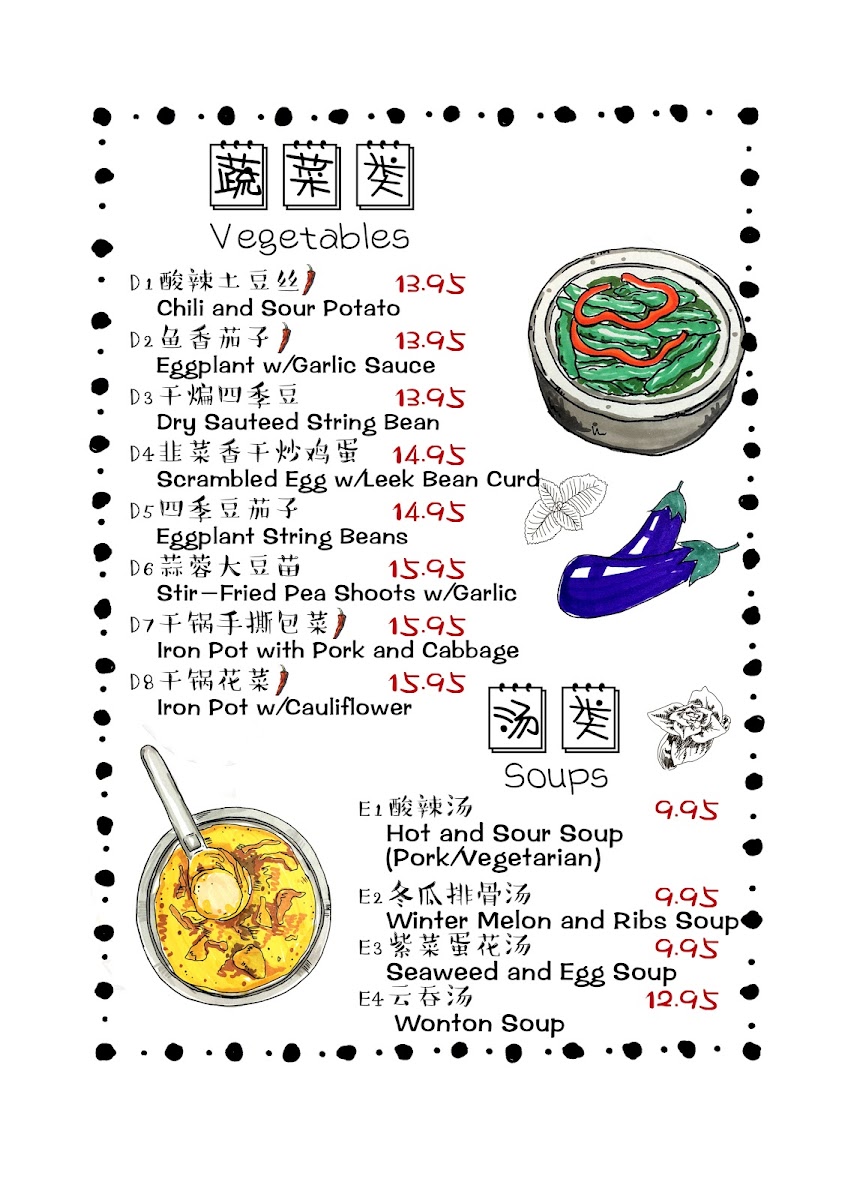 蔬菜类
Vegetables
D1酸辣土豆丝 13.95
Chili and Sour Potato
D2鱼香茄子 13.95
Eggplant w/Garlic Sauce
D3干煸四季豆 13.95
Dry Sauteed String Bean
D4韭菜香干炒鸡蛋 14.95
Scrambled Egg w/Leek Bean Curd
D5四季豆茄子 14.95
Eggplant String Beans
D6蒜蓉大豆苗 15.95
Stir-Fried Pea Shoots w/Garlic
D7干锅手撕包菜 15.95
Iron Pot with Pork and Cabbage
D8干锅花菜 15.95
Iron Pot w/Cauliflower
汤类
Soups
E1酸辣汤 9.95
Hot and Sour Soup
(Pork/Vegetarian)
E2冬瓜排骨汤 9.95
Winter Melon and Ribs Soup
E3紫菜蛋花汤 9.95
Seaweed and Egg Soup
E4云吞汤 12.95
Wonton Soup